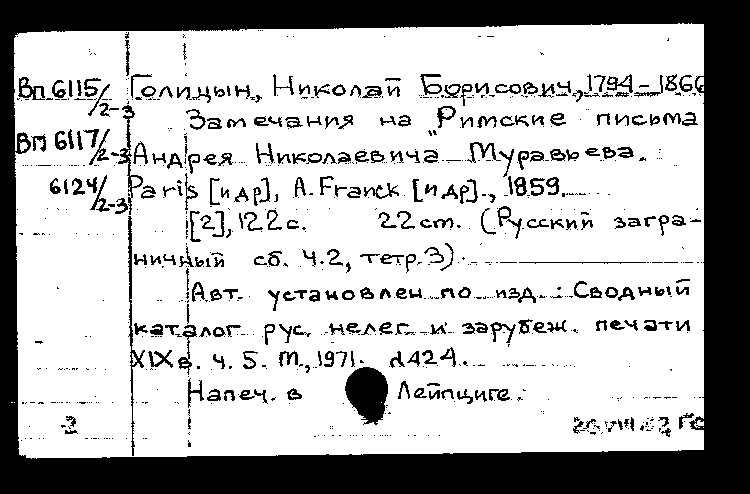 Вп 6115/2-3 Голицын, Николай Борисович, 1794-1866
Замечания на "Римские письма
Вп 6117/2-3 Андрея Николаевича Муравьева.
6124/2-3 Paris [и др], A. Franck [и др]., 1859.
[2], 122 с. 22 cm. (Русский загра-
ничный сб. Ч.2, тетр.3).
Авт. установлен по изд.: Сводный
каталог рус. нелег. и зарубеж. печати
XIX в. ч. 5. М., 1971. №424.
Напеч. в Лейпциге.
2